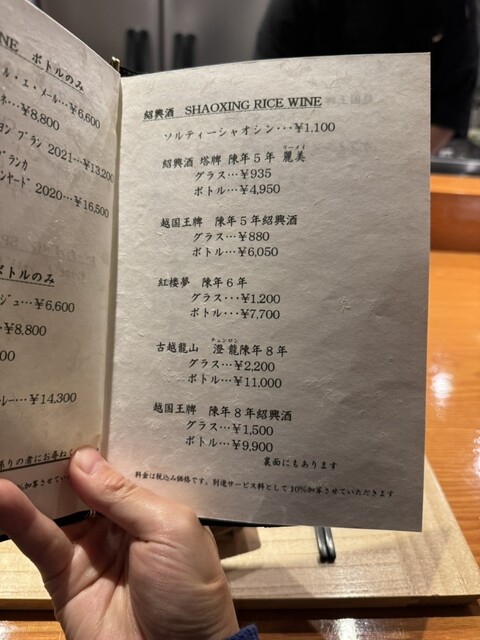 NE ボトルのみ
ル・エ・メール…￥6,600
ネ…￥8,800
ヨン ブラン 2021…￥13,200
ブランカ
ンヤード 2020…￥16,500
ボトルのみ
ジュ…￥6,600
…￥8,800
00
ルー…￥14,300
係りの者にお尋ね
紹興酒 SHAOXING RICE WINE
ソルティーシャオシン…￥1,100
紹興酒 塔牌 陳年５年 麗美
グラス…￥935
ボトル…￥4,950
越国王牌 陳年５年紹興酒
グラス…￥880
ボトル…￥6,050
紅楼夢 陳年６年
グラス…￥1,200
ボトル…￥7,700
チュンロン
古越龍山 澄龍陳年８年
グラス…￥2,200
ボトル…￥11,000
越国王牌 陳年８年紹興酒
グラス…￥1,500
ボトル…￥9,900
裏面にもあります
料金は税込み価格です。別途サービス料として10%加算させていただきます